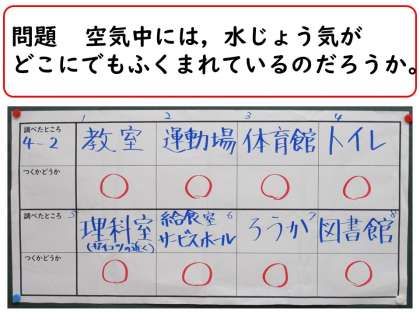 問題　空気中には，水じょう気が
どこにでもふくまれているのだろうか。
1 2 3 4
調べたところ
4-2 教室 運動場 体育館 トイレ
つくかどうか ○ ○ ○ ○
調べたところ 5 6 7 8
理科室 給食室 ろうか 図書館
サービスホール
つくかどうか ○ ○ ○ ○